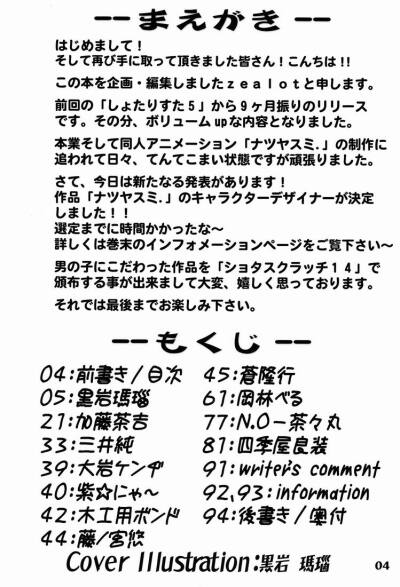 --まえがき--
はじめまして！
そして再び手に取って頂きました皆さん！こんちは！！
この本を企画・編集しましたｚｅａｌｏｔと申します。
前回の「しょたりすた５」から９ヶ月振りのリリース
です。その分、ボリュームupな内容となりました。
本業そして同人アニメーション「ナツヤスミ．」の制作に
追われて日々、てんてこまい状態ですが頑張りました。
さて、今日は新たなる発表があります！
作品「ナツヤスミ．」のキャラクターデザイナーが決定
しました！！
選定までに時間かかったな～
詳しくは巻末のインフォメーションページをご覧下さい～
男の子にこだわった作品を「ショタスクラッチ１４」で
頒布する事が出来まして大変、嬉しく思っております。
それでは最後までお楽しみ下さい。
--もくじ--
04:前書き/目次
05:黒岩瑪瑙
21:加藤茶吉
33:三井純
39:大岩ケンヂ
40:紫☆にゃ～
42:木工用ボンド
44:藤ノ宮悠
45:蒼隆行
61:岡林べる
77:N.O-茶々丸
81:四季屋良装
91:writer's comment
92,93:information
94:後書き/奥付
Cover Illustration:黒岩 瑪瑙
04